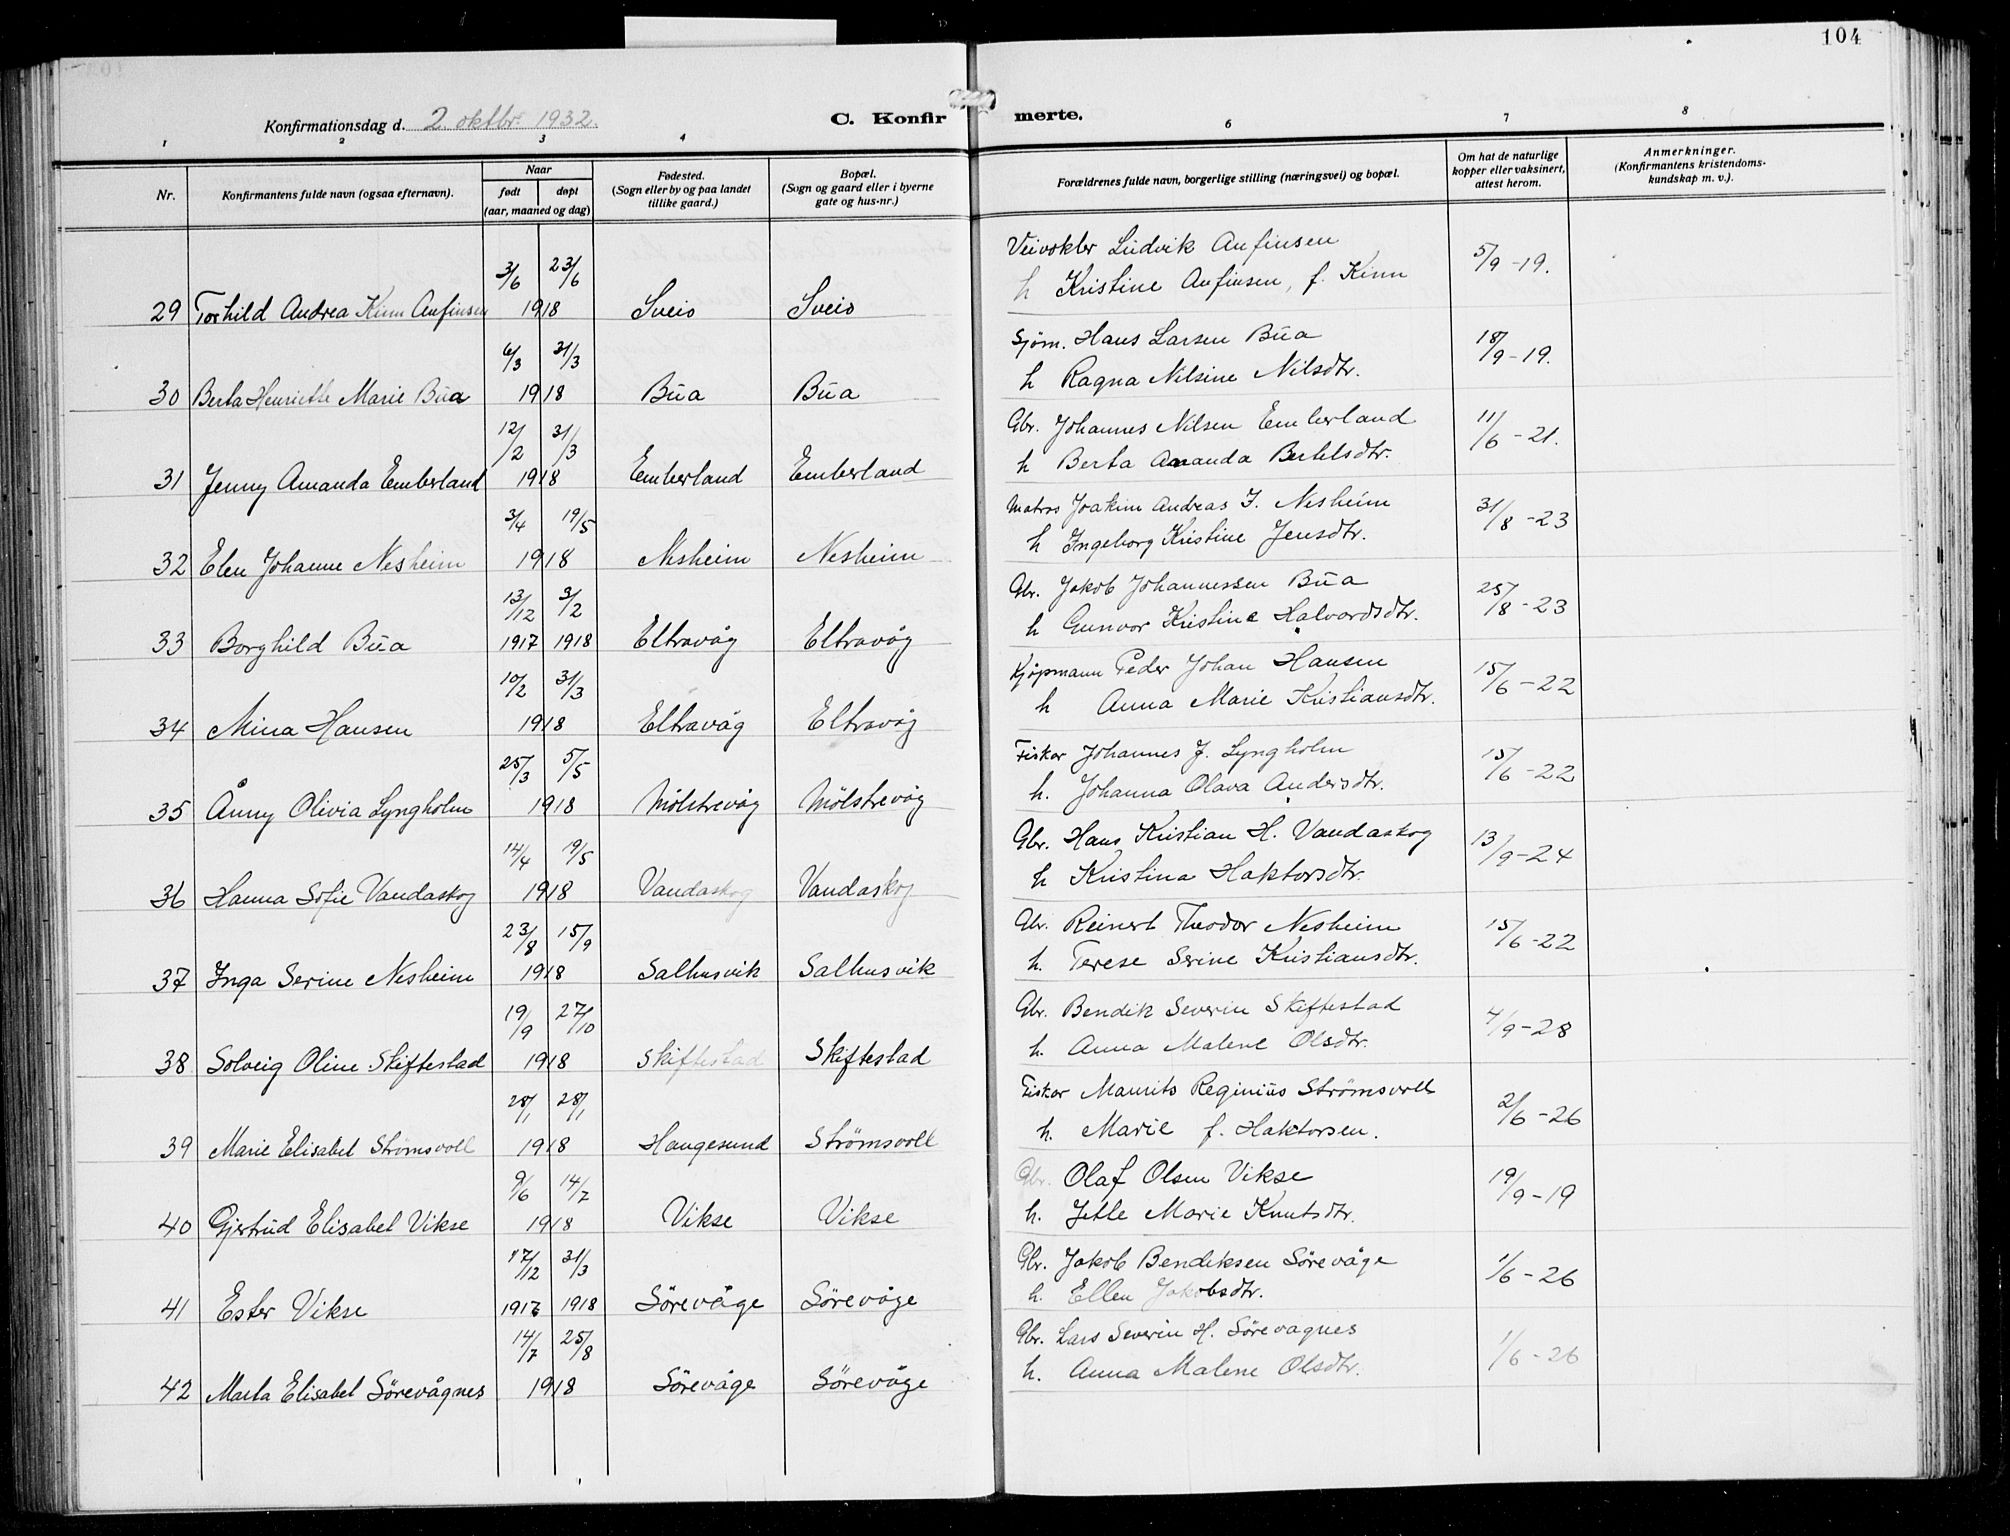 104
Konfirmationsdag d. 2. oktbr. 1932.
C. Konfirmerte.
1 2 3 4 6 7 8
Nr.
Konfirmantens fulde navn (ogsaa efternavn).
Naar
født døpt
(aar, maaned og dag)
Fødested.
(Sogn eller by og paa landet
tillike gaard.)
Bopæl.
(Sogn og gaard eller i byerne
gate og hus-nr.)
Forældrenes fulde navn, borgerlige stilling (næringsvei) og bopæl.
Om hat de naturlige
kopper eller vaksinert,
attest herom.
Anmerkninger.
(Konfirmantens kristendoms-
kundskap m. v.).
3/6 23/6 Veivokter Ludvik Anfinsen 5/9-19.
29 Torhild Andrea Kinn Anfinsen 1918 Sveio Sveio h Kristine Anfinsen, f. Kinn
6/3 31/3 Sjøm. Hans Larsen Bua 18/9-19.
30 Berta Henriette Marie Bua 1918 Bua Bua h Ragna Nilsine Nilsdtr.
12/2 31/3 Gbr. Johannes Nilsen Emberland 11/6-21.
31 Jenny Amanda Emberland 1918 Emberland Emberland h Berta Amanda Bertelsdtr.
3/4 19/5 Matros Joakim Andreas J. Nesheim 31/8-23
32 Elen Johanne Nesheim 1918 Nesheim Nesheim h Ingeborg Kristine Jensdtr.
13/12 3/2 Gbr. Jakob Johannessen Bua 25/8-23
33 Borghild Bua 1917 1918 Eltravåg Eltravåg h Gunvor Kristine Halvardsdtr.
10/2 31/3 Kjøpmann Peder Johan Hansen 15/6-22
34 Mina Hansen 1918 Eltravåg Eltravåg h Anna Marie Kristiansdtr.
25/3 5/5 Fisker Johannes J. Lyngholm 15/6-22
35 Anny Olivia Lyngholm 1918 Mölstrevåg Mölstrevåg h. Johanna Olava Andersdtr.
14/4 19/5 Gbr. Hans Kristian H. Vandaskog 13/9-24
36 Hanna Sofie Vandaskog 1918 Vandaskog Vandaskog h Kristina Haktorsdtr.
23/8 15/9 Gbr. Reinert Theodor Nesheim 15/6-22
37 Inga Serine Nesheim 1918 Salhusvik Salhusvik h. Terese Serine Kristiansdtr.
19/9 27/10 Gbr. Bendik Severin Skiftestad 4/9-28
38 Solveig Oline Skiftestad 1918 Skiftestad Skiftestad h. Anna Malene Olsdtr.
28/1 28/1 Fisker Maurits Reginius Strømsvoll 2/6-26
39 Marie Elisabet Strømsvoll 1918 Haugesund Strømsvoll h. Marie f. Haktorsen.
9/6 14/7 Gbr. Olaf Olsen Vikse 19/9-19
40 Gjertrud Elisabet Vikse 1918 Vikse Vikse h. Jetle Marie Knutsdtr.
17/12 31/3 Gbr. Jakob Bendiksen Sörevåge 1/6-26
41 Ester Vikse 1917 1918 Sörevåge Sörevåge h. Ellen Jakobsdtr.
14/7 25/8 Gbr. Lars Severin H. Sörevagnes 1/6-26
42 Marta Elisabet Sörevågnes 1918 Sörevåge Sörevåge h. Anna Malene Olsdtr.